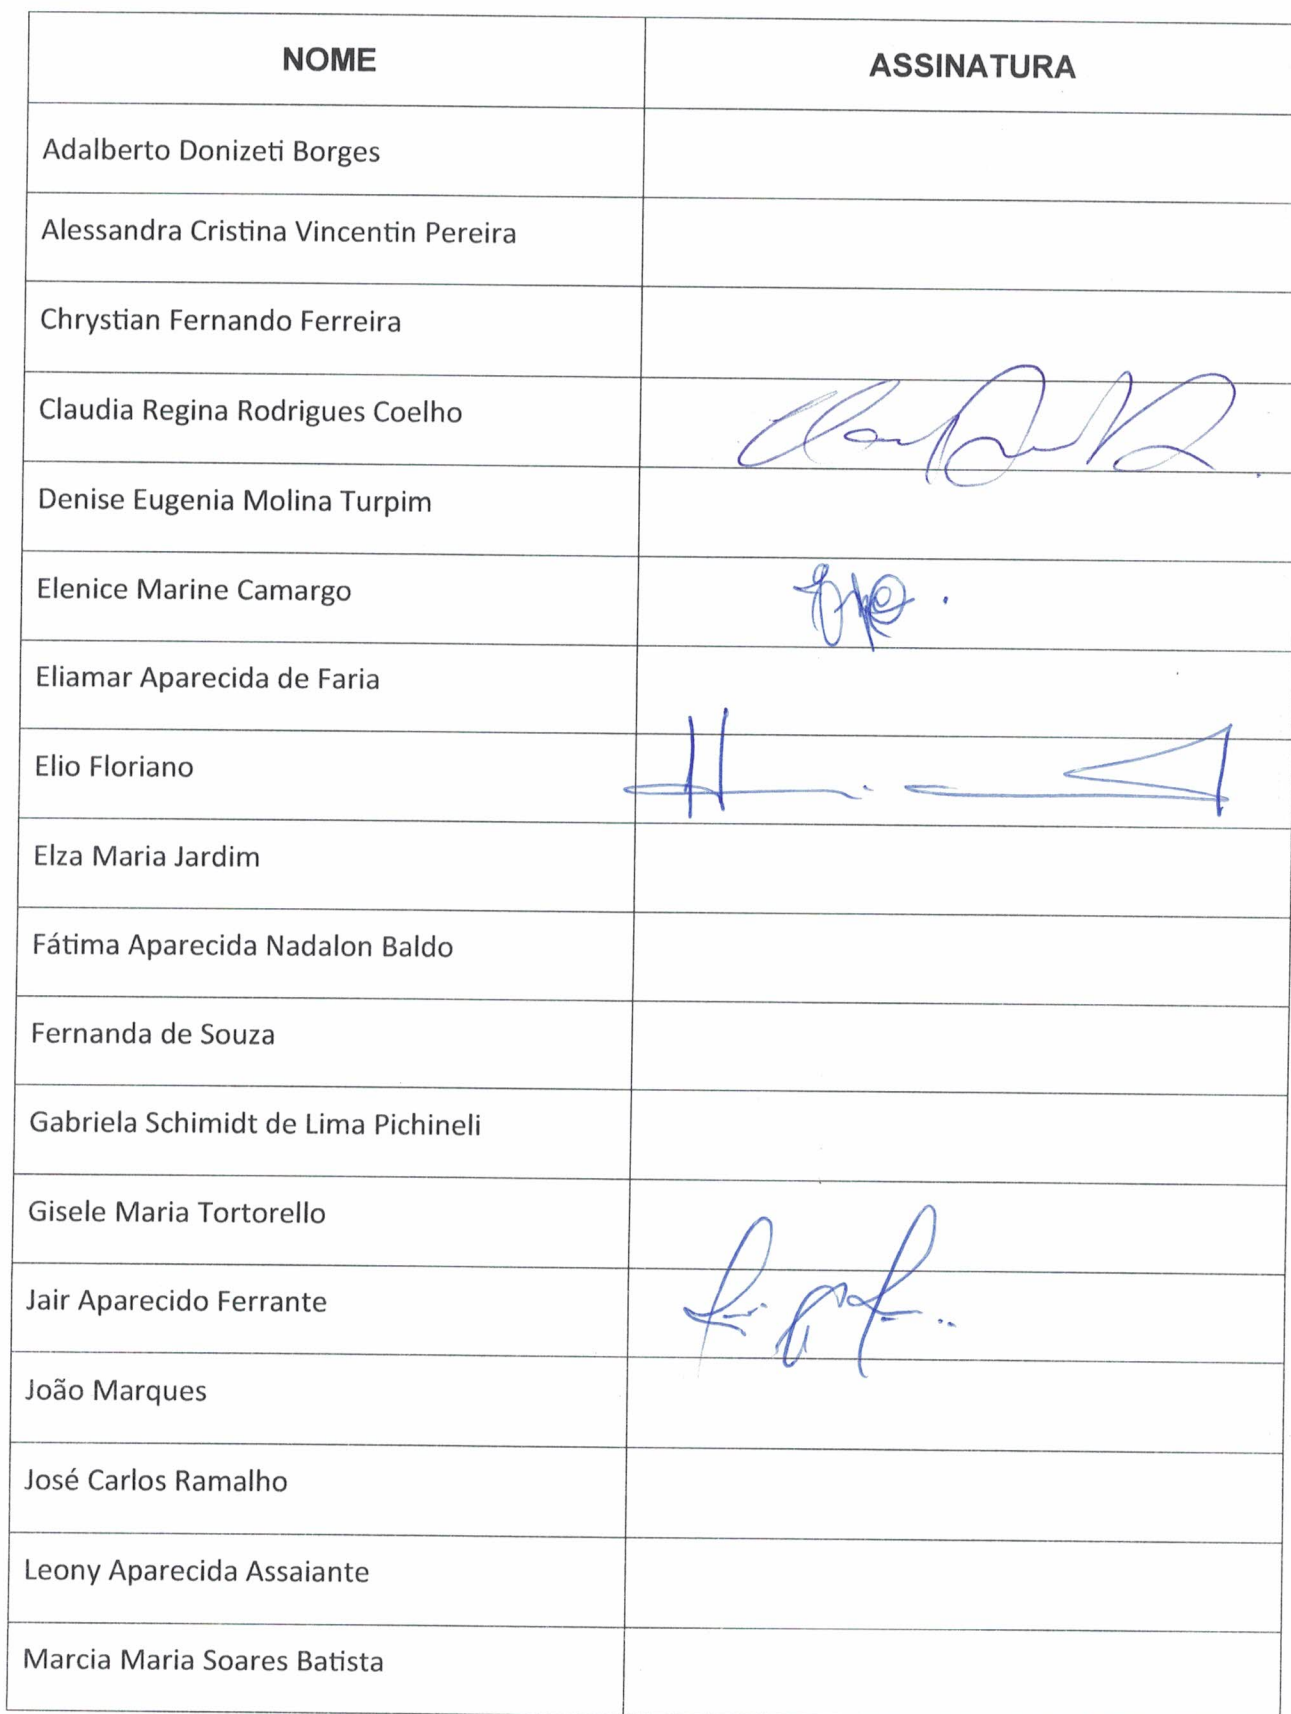 NOME ASSINATURA
Adalberto Donizeti Borges
Alessandra Cristina Vincentin Pereira
Chrystian Fernando Ferreira
Claudia Regina Rodrigues Coelho
Denise Eugenia Molina Turpim
Elenice Marine Camargo
Eliamar Aparecida de Faria
Elio Floriano
Elza Maria Jardim
Fátima Aparecida Nadalon Baldo
Fernanda de Souza
Gabriela Schimidt de Lima Pichineli
Gisele Maria Tortorello
Jair Aparecido Ferrante
João Marques
José Carlos Ramalho
Leony Aparecida Assaiante
Marcia Maria Soares Batista